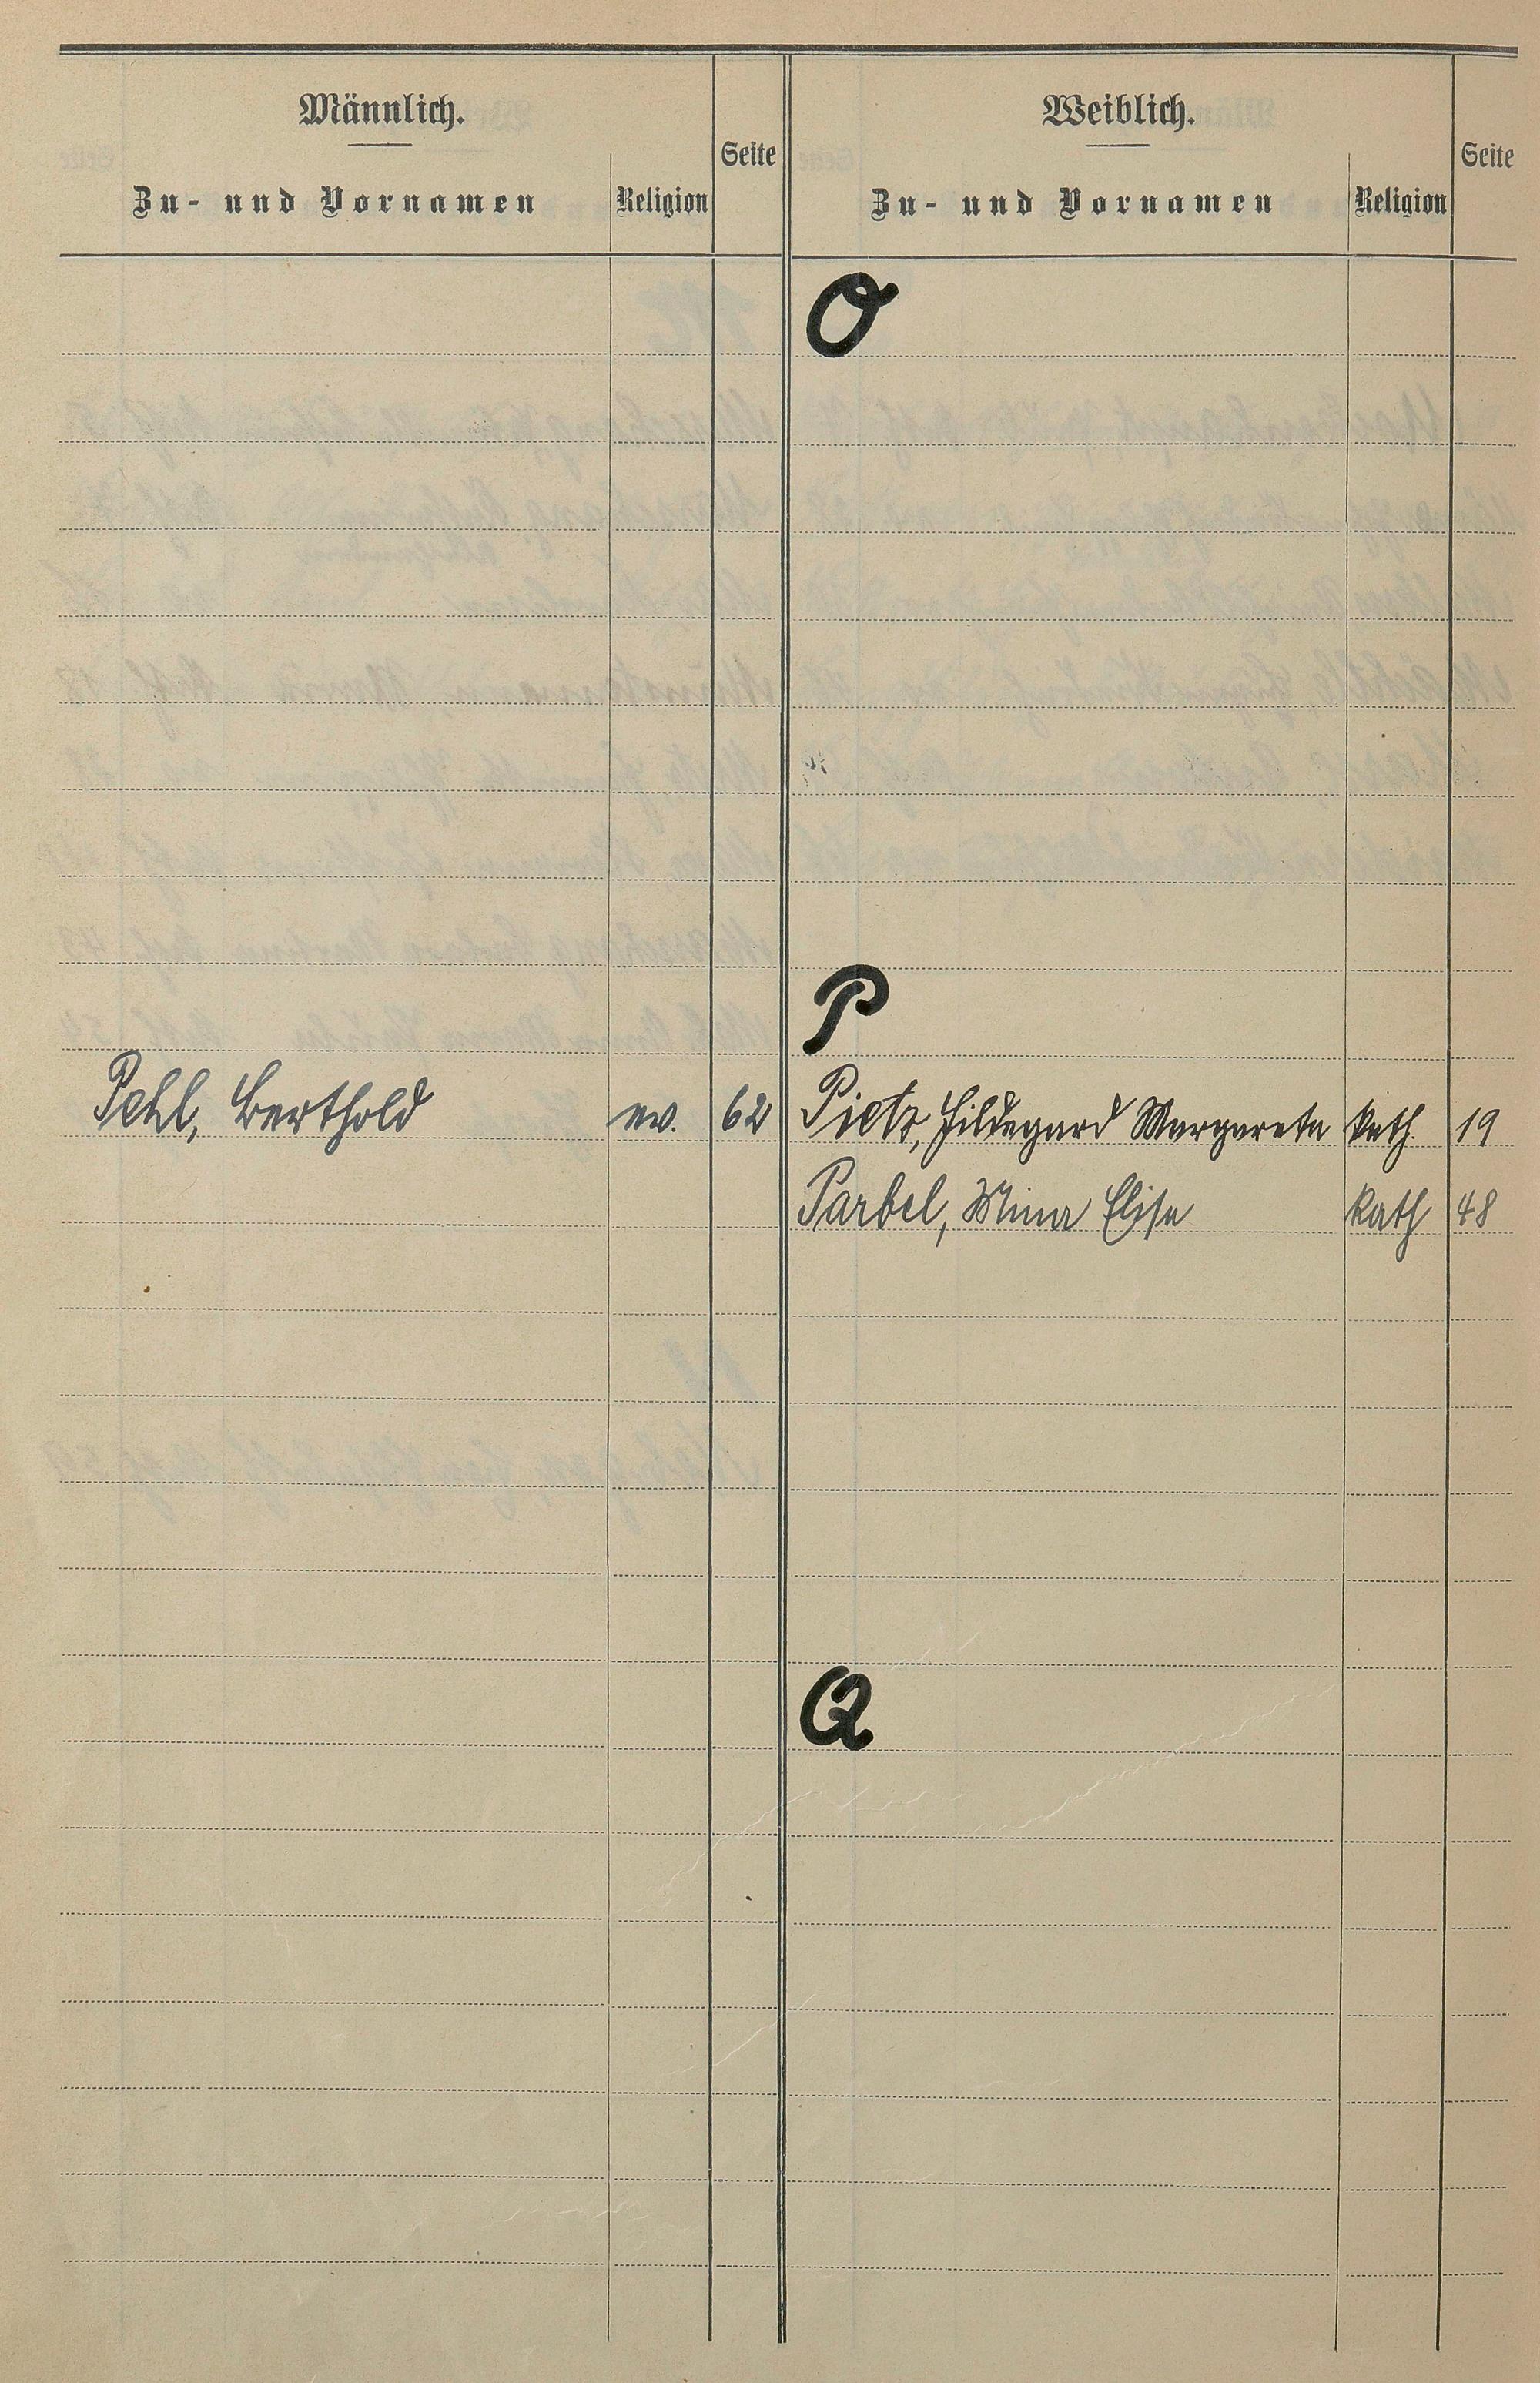 Männlich.
Zu- und Vornamen Religion Seite
Weiblich.
Zu- und Vornamen Religion Seite
O
P
Pehl, Berthold ev. 62
Pietz, Hildegard Margareta kath. 19
Parbel, Mina Elisa kath 48
Q